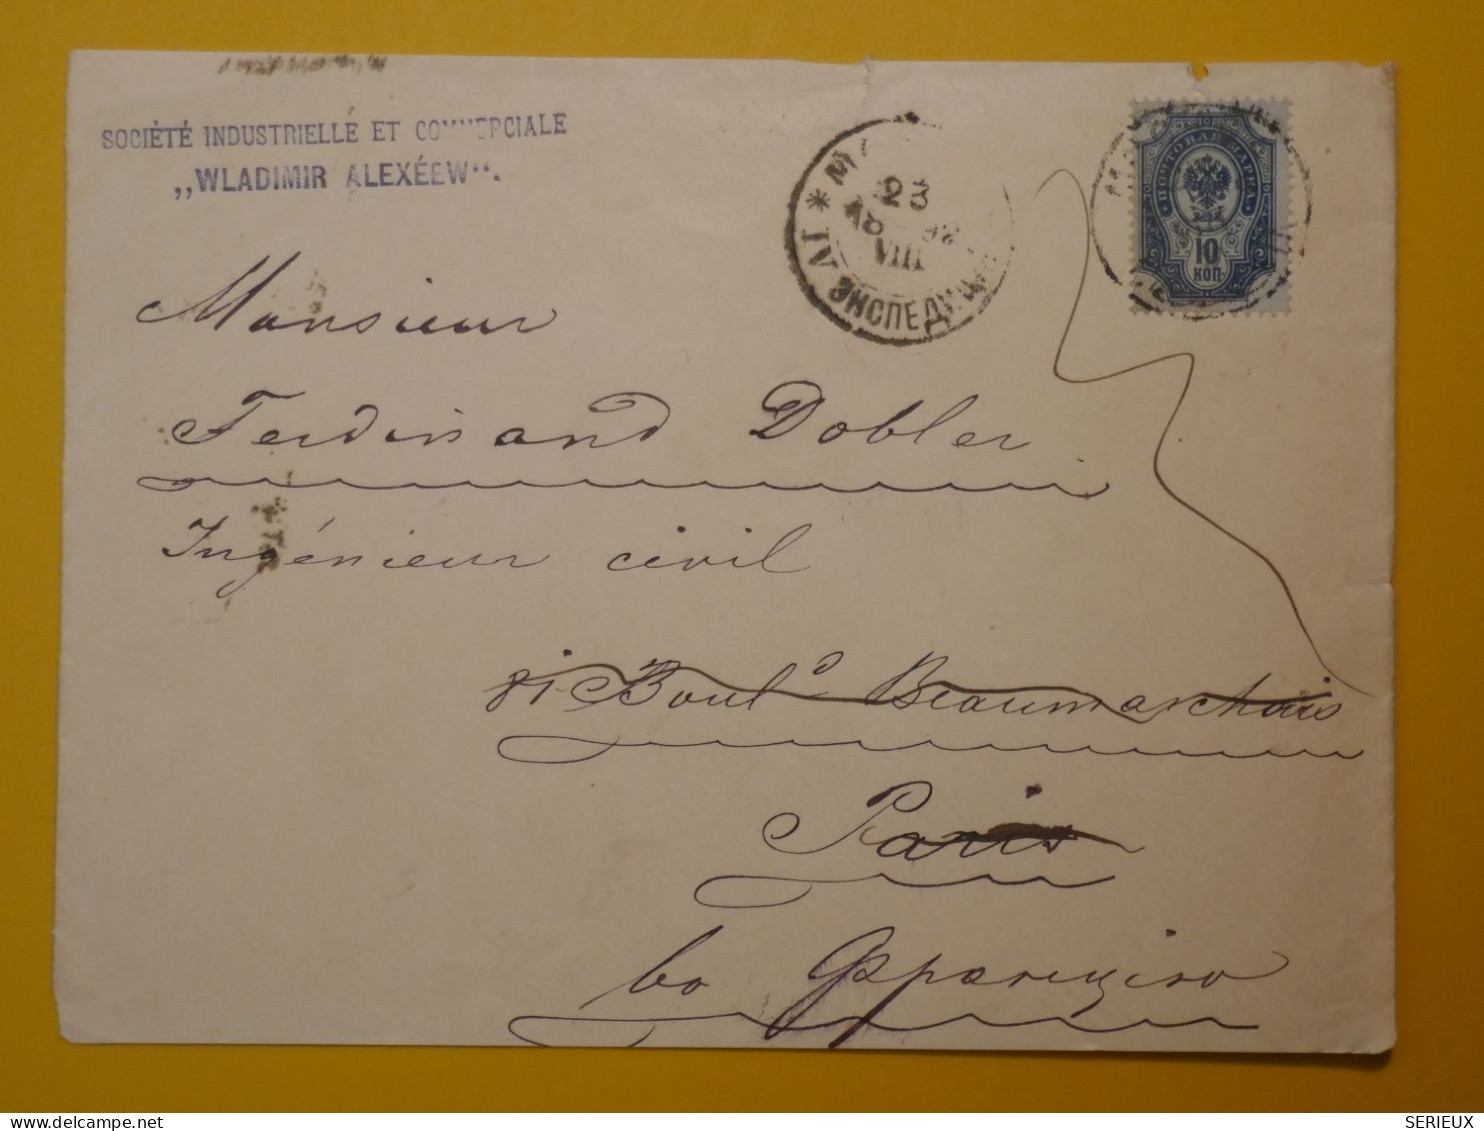 SOCIÉTÉ INDUSTRIELLE ET COMMERCIALE
„WLADIMIR ALEXÉEW“.
23
VIII
ЭКСПЕДИЦ
ПОЧТОВАЯ МАРКА
10
КОП
Monsieur
Ferdinand Dobler
Ingénieur civil
81 Boulᵈ Beaumarchais
Paris
во Францiю
SERIEUX
www.delcampe.net